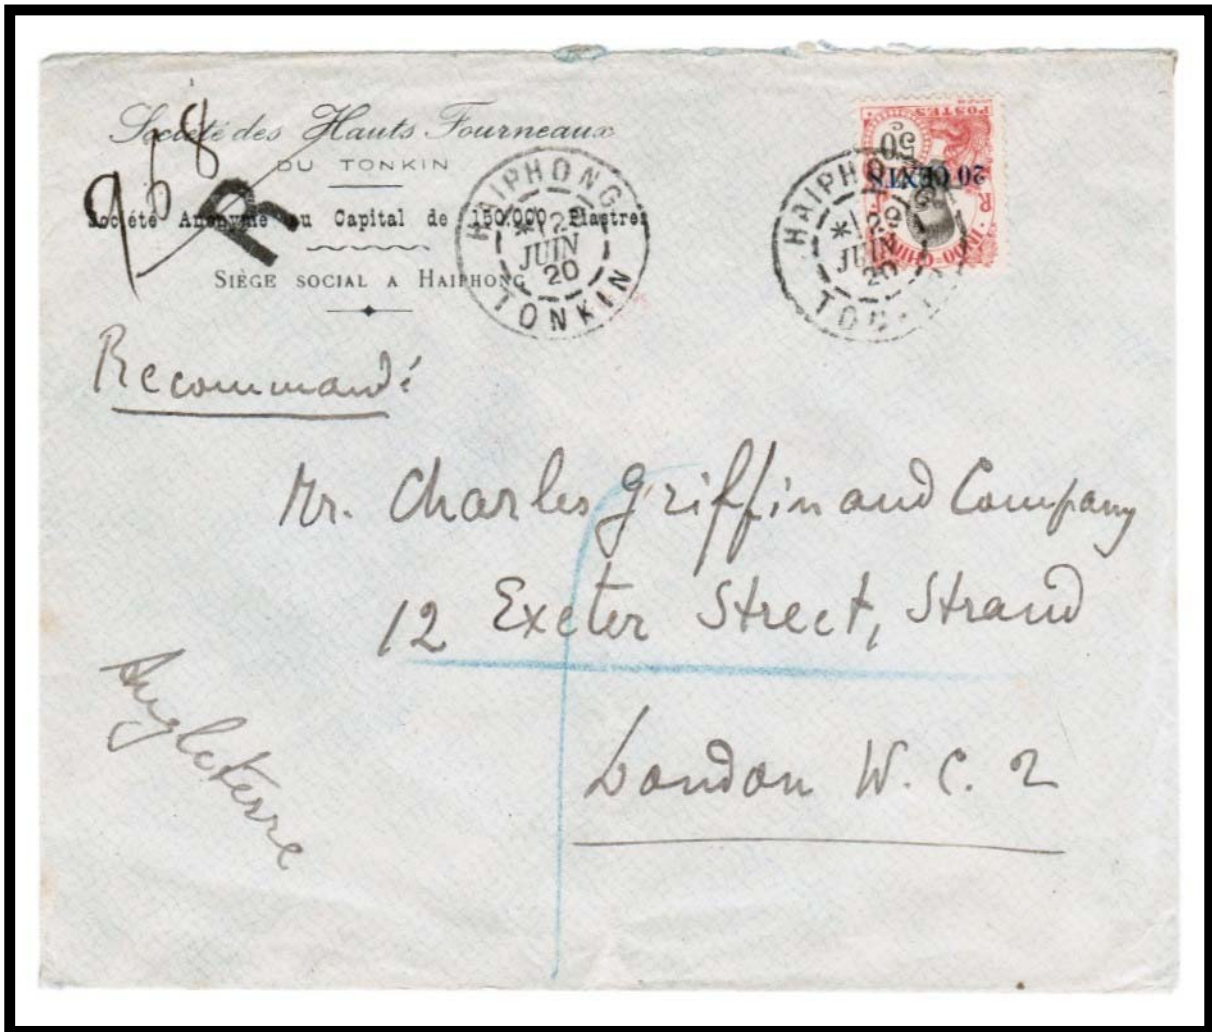 Société des Hauts Fourneaux
DU TONKIN
Société Anonyme au Capital de 150.000 Piastres
SIÈGE SOCIAL A HAIPHONG
968
R
HAIPHONG
*12
JUIN
20
TONKIN
HAIPHONG
*12
JUIN
20
TONKIN
POSTES
50
20 CENTS
R
INDO-CHINE
Recommandé
Mr. Charles Griffin and Company
12 Exeter Street, Strand
London W. C. 2
Angleterre